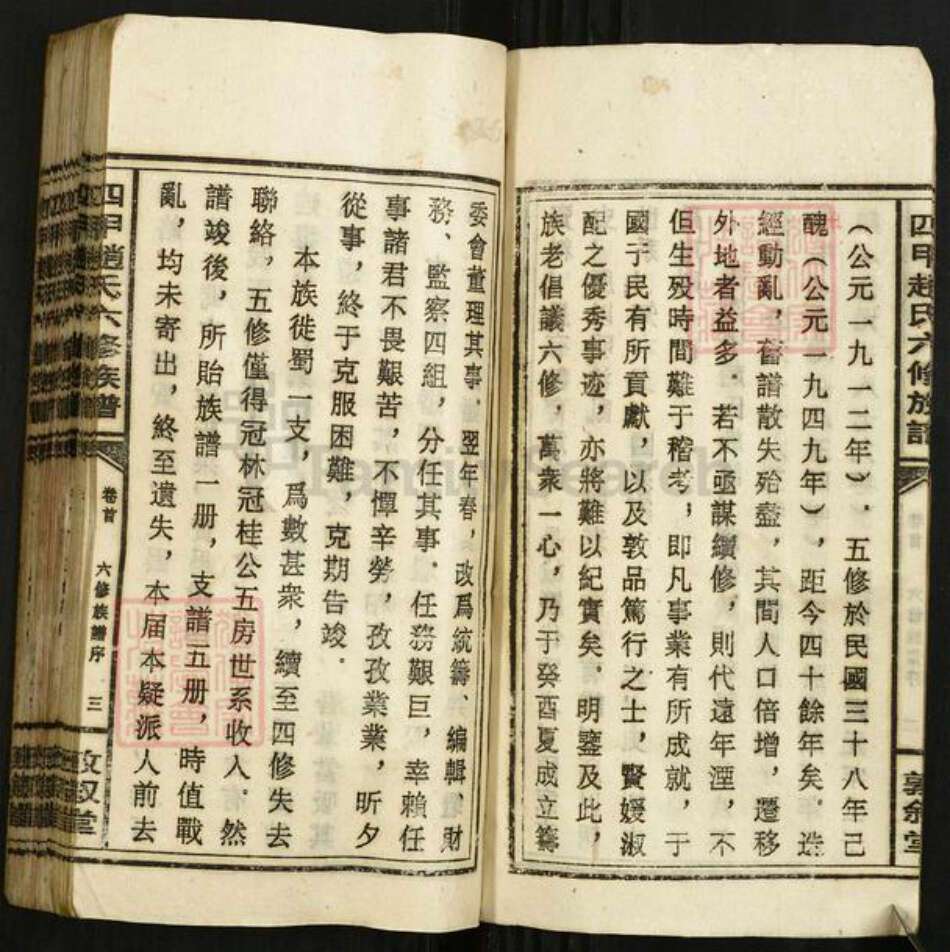 四甲趙氏六修族譜
敦叙堂
（公元一九一二年）．五修於民國三十八年己
醜（公元一九四九年），距今四十餘年矣．迭
經動亂，舊譜散失殆盡，其間人口倍增，遷移
外地者益多．若不亟謀續修，則代遠年湮，不
但生殁時間難于稽考，即凡事業有所成就，于
國于民有所貢獻，以及敦品篤行之士，賢媛淑
配之優秀事迹，亦將難以紀實矣．明鑒及此，
族老倡議六修，萬衆一心，乃于癸酉夏成立籌
委會董理其事．翌年春，改爲統籌、編輯、財
務、監察四組，分任其事．任務艱巨，幸賴任
事諸君不畏艱苦，不憚辛勞，孜孜業業，昕夕
從事，終于克服困難，克期告竣．
本族徙蜀一支，爲數甚衆，續至四修失去
聯絡，五修僅得冠林冠桂公五房世系收入．然
譜竣後，所貽族譜一册，支譜五册，時值戰
亂，均未寄出，終至遺失，本届本疑派人前去
四甲趙氏六修族譜
卷首
六修族譜序
三
敦叙堂